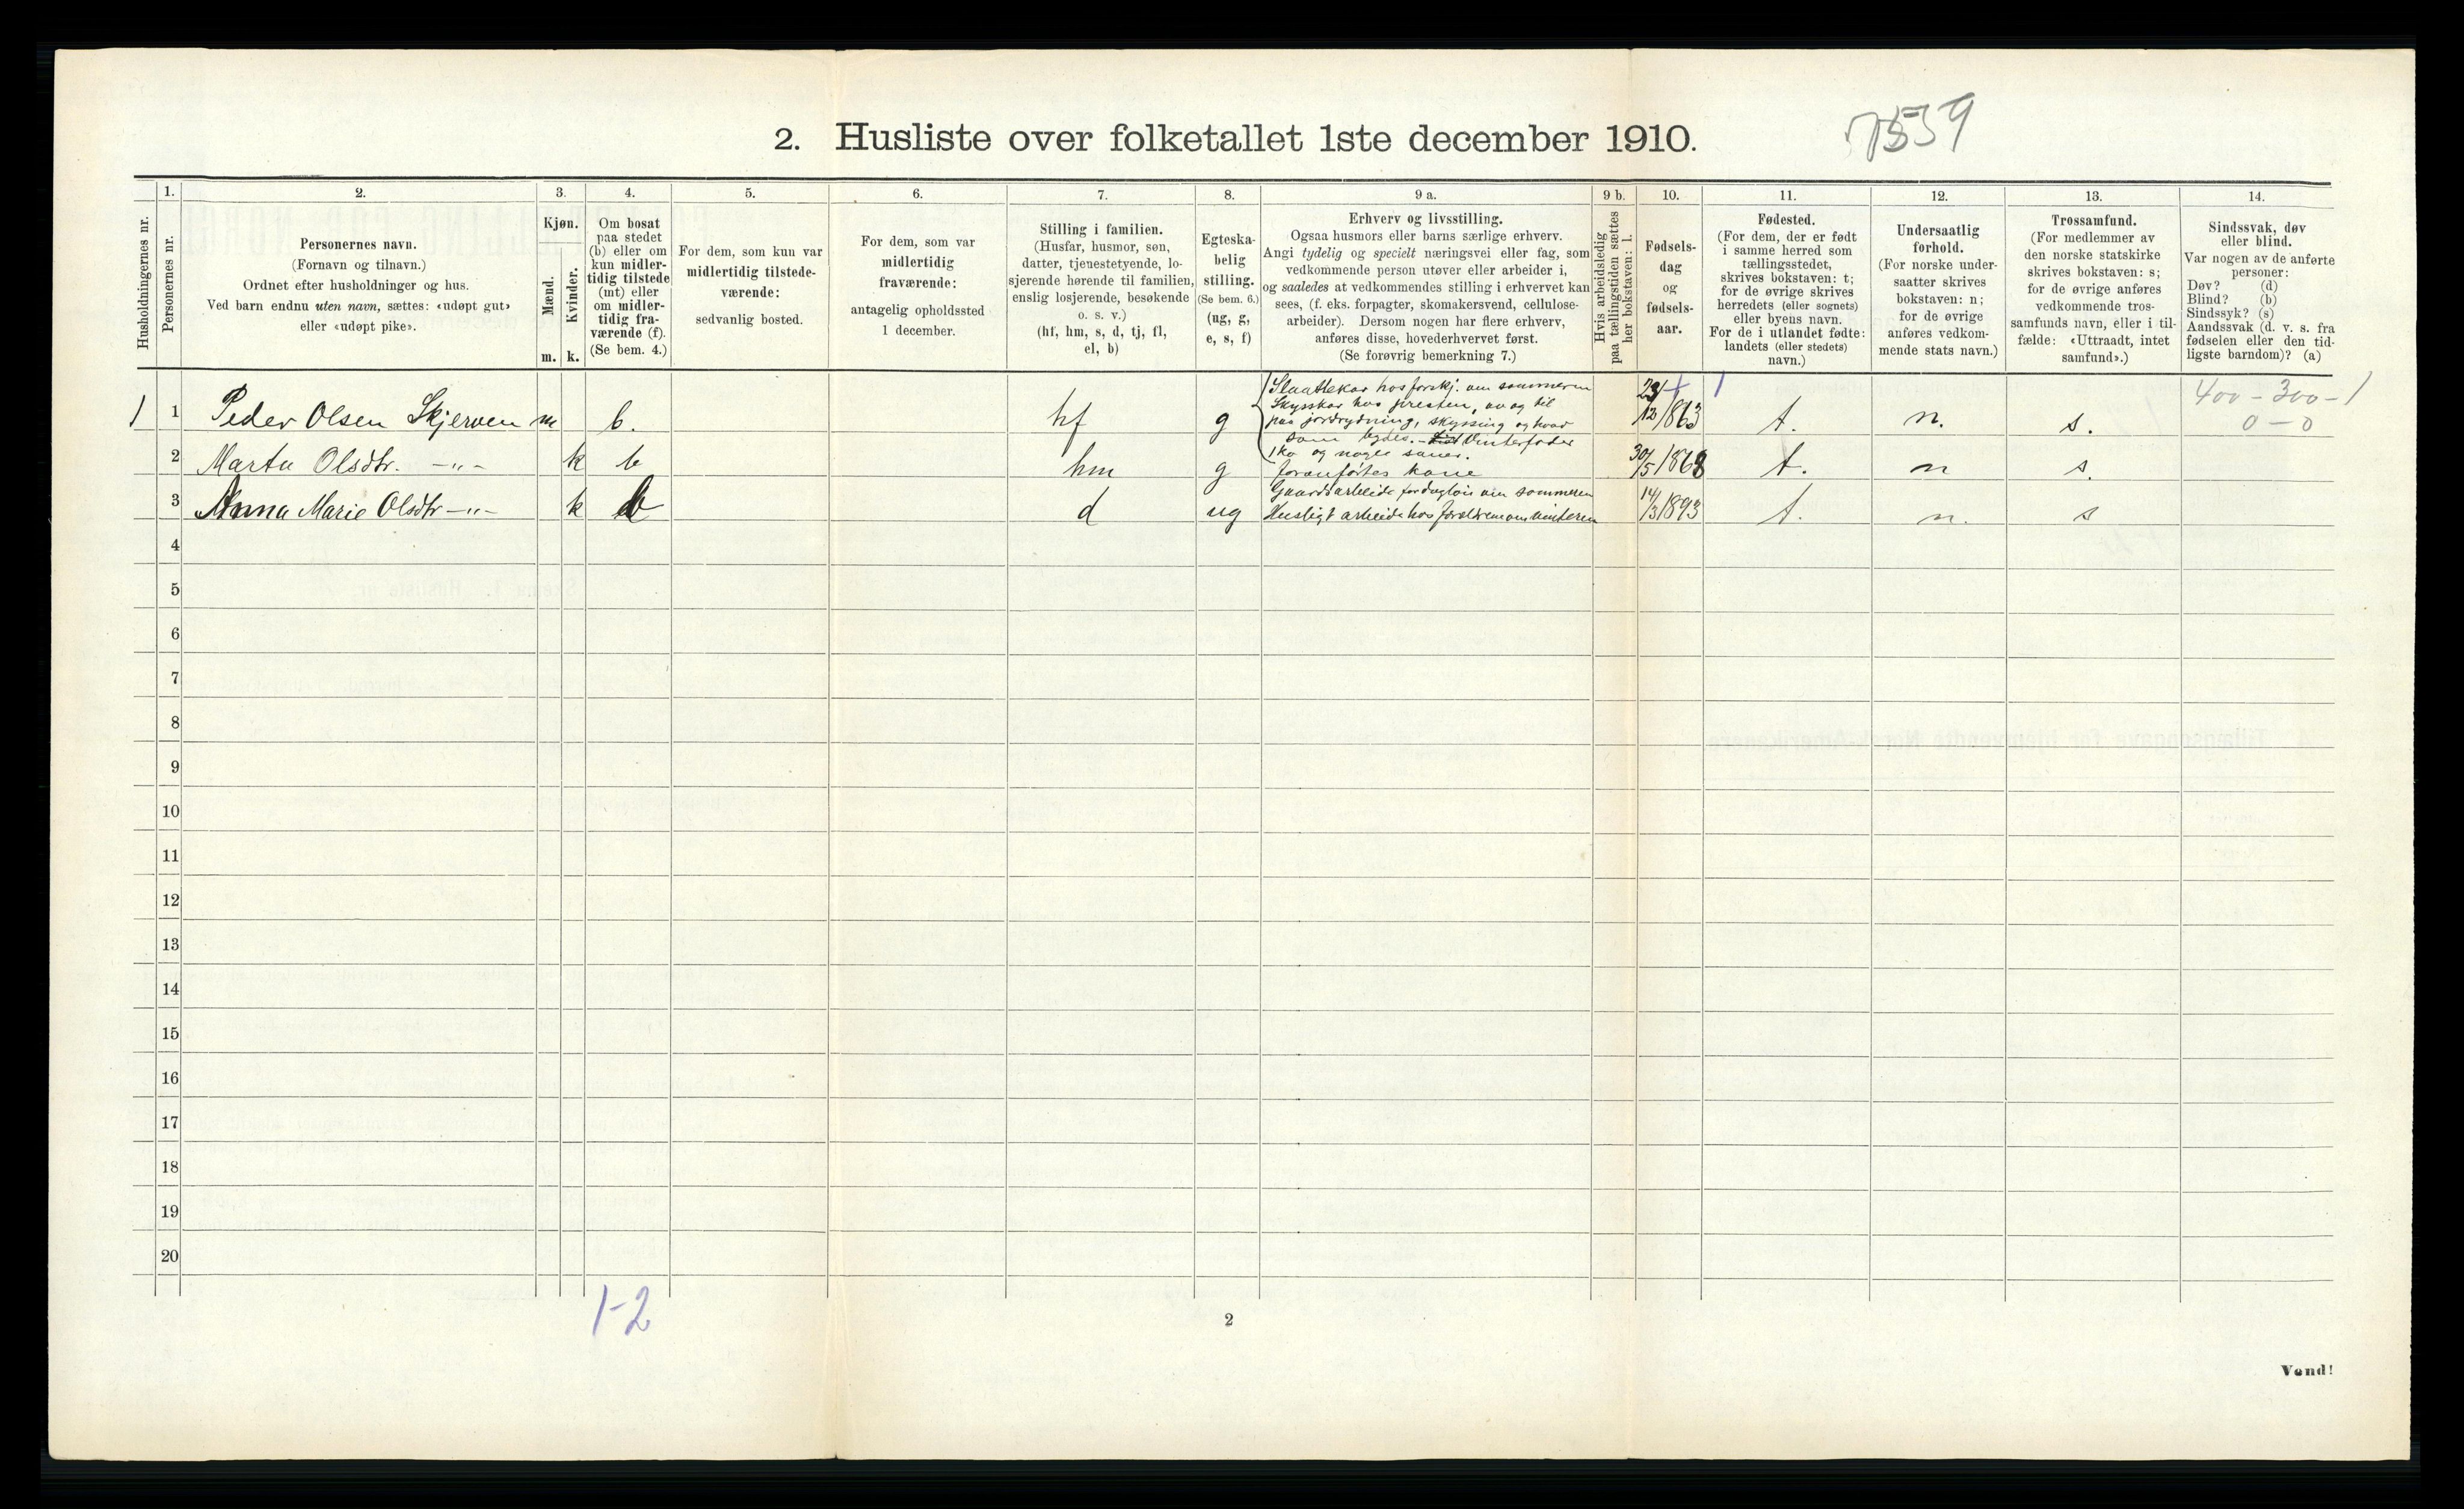 2. Husliste over folketallet 1ste december 1910.
Husholdningernes nr.
1.
Personernes nr.
2.
Personernes navn.
(Fornavn og tilnavn.)
Ordnet efter husholdninger og hus.
Ved barn endnu uten navn, sættes: «udøpt gut»
eller «udøpt pike».
3.
Kjøn.
Mænd.
Kvinder.
m. k.
4.
Om bosat
paa stedet
(b) eller om
kun midler-
tidig tilstede
(mt) eller
om midler-
tidig fra-
værende (f).
(Se bem. 4.)
5.
For dem, som kun var
midlertidig tilstede-
værende:
sedvanlig bosted.
6.
For dem, som var
midlertidig
fraværende:
antagelig opholdssted
1 december.
7.
Stilling i familien.
(Husfar, husmor, søn,
datter, tjenestetyende, lo-
sjerende hørende til familien,
enslig losjerende, besøkende
o. s. v.)
(hf, hm, s, d, tj, fl,
el, b)
8.
Egteska-
belig
stilling.
(Se bem. 6.)
(ug, g,
e, s, f)
9 a.
Erhverv og livsstilling.
Ogsaa husmors eller barns særlige erhverv.
Angi tydelig og specielt næringsvei eller fag, som
vedkommende person utøver eller arbeider i,
og saaledes at vedkommendes stilling i erhvervet kan
sees, (f. eks. forpagter, skomakersvend, cellulose-
arbeider). Dersom nogen har flere erhverv,
anføres disse, hovederhvervet først.
(Se forøvrig bemerkning 7.)
9 b.
Hvis arbeidsledig
paa tællingstiden sættes
her bokstaven: l.
10.
Fødsels-
dag
og
fødsels-
aar.
11.
Fødested.
(For dem, der er født
i samme herred som
tællingsstedet,
skrives bokstaven: t;
for de øvrige skrives
herredets (eller sognets)
eller byens navn.
For de i utlandet fødte:
landets (eller stedets)
navn.)
12.
Undersaatlig
forhold.
(For norske under-
saatter skrives
bokstaven: n;
for de øvrige
anføres vedkom-
mende stats navn.)
13.
Trossamfund.
(For medlemmer av
den norske statskirke
skrives bokstaven: s;
for de øvrige anføres
vedkommende tros-
samfunds navn, eller i til-
fælde: «Uttraadt, intet
samfund».)
14.
Sindssvak, døv
eller blind.
Var nogen av de anførte
personer:
Døv? (d)
Blind? (b)
Sindssyk? (s)
Aandssvak (d. v. s. fra
fødselen eller den tid-
ligste barndom)? (a)
1 1 Peder Olsen Skjerven m b. hf g
Slaattekar hos forskj. om sommeren
Skysskar hos presten, av og til
paa jordrydning, skyssing og hvad
som bydes. - Vinterføder
1 ko og nogle sauer.
23/12 1863 t. n. s.
400 - 300 - 1
0 - 0
2 Marta Olsdtr. -"- k b hm g foranførtes kone 30/5 1868 t. n s.
3 Anna Marie Olsdtr -"- k b d ug
Gaardsarbeide for dagløn om sommeren
Husligt arbeide hos forældrene om vinteren
14/3 1893 t. n. s
4
5
6
7
8
9
10
11
12
13
14
15
16
17
18
19
20
1-2
2
Vend!